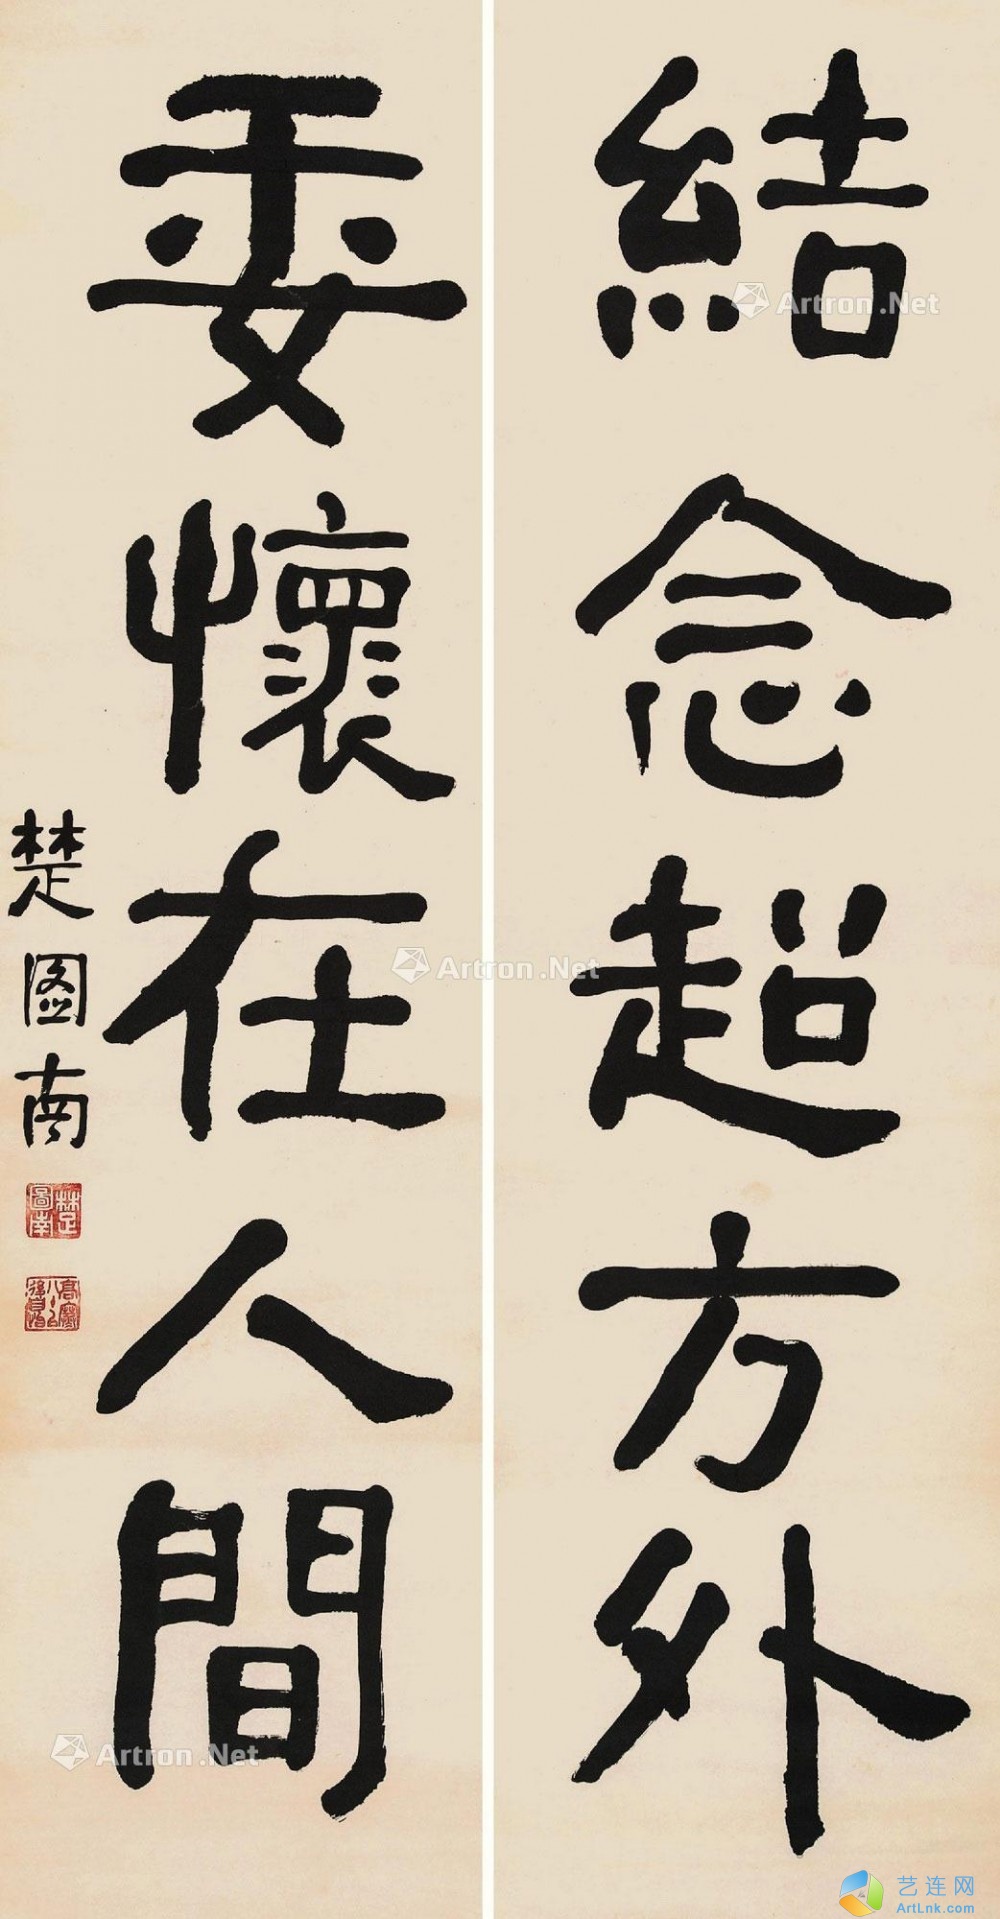 結念超方外
委懷在人間
楚图南
楚圖南
Artron.Net
Artron.Net
Artron.Net
艺连网
ArtLnk.com